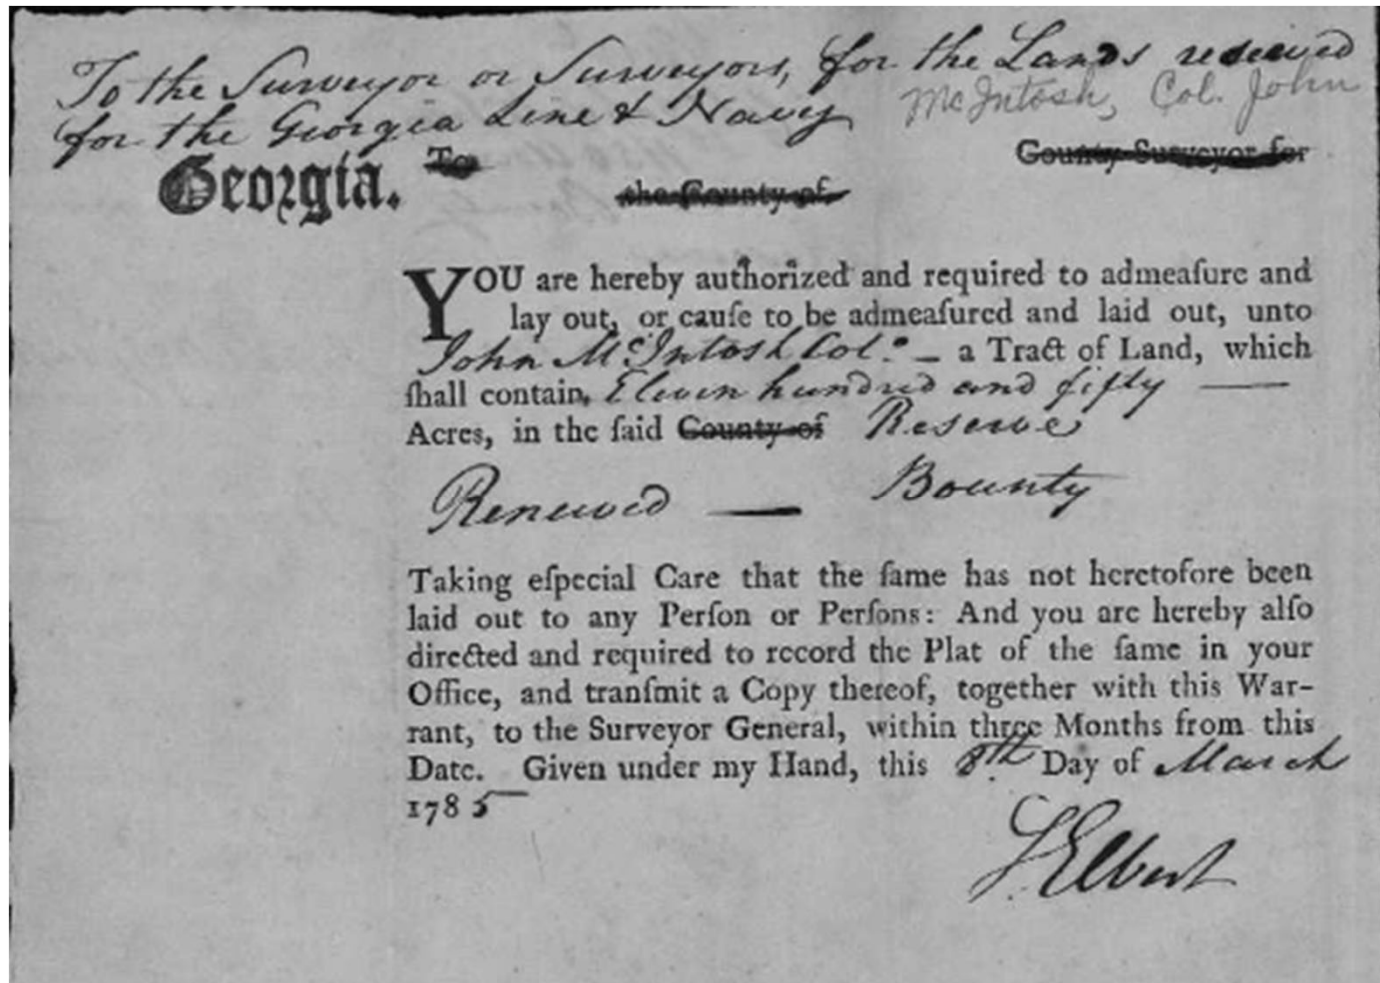 To the Surveyor or Surveyors, for the Lands reserved
McIntosh, Col. John
for the Georgia Line & Navy
Georgia. To County Surveyor for
the County of
YOU are hereby authorized and required to admeaſure and
lay out, or cauſe to be admeaſured and laid out, unto
John McIntosh Colo. – a Tract of Land, which
ſhall contain, Eleven hundred and fifty —
Acres, in the ſaid County of Reserve
Renewed — Bounty
Taking eſpecial Care that the ſame has not heretofore been
laid out to any Perſon or Perſons: And you are hereby alſo
directed and required to record the Plat of the ſame in your
Office, and tranſmit a Copy thereof, together with this War-
rant, to the Surveyor General, within three Months from this
Date. Given under my Hand, this 8th. Day of March
1785
S. Elbert